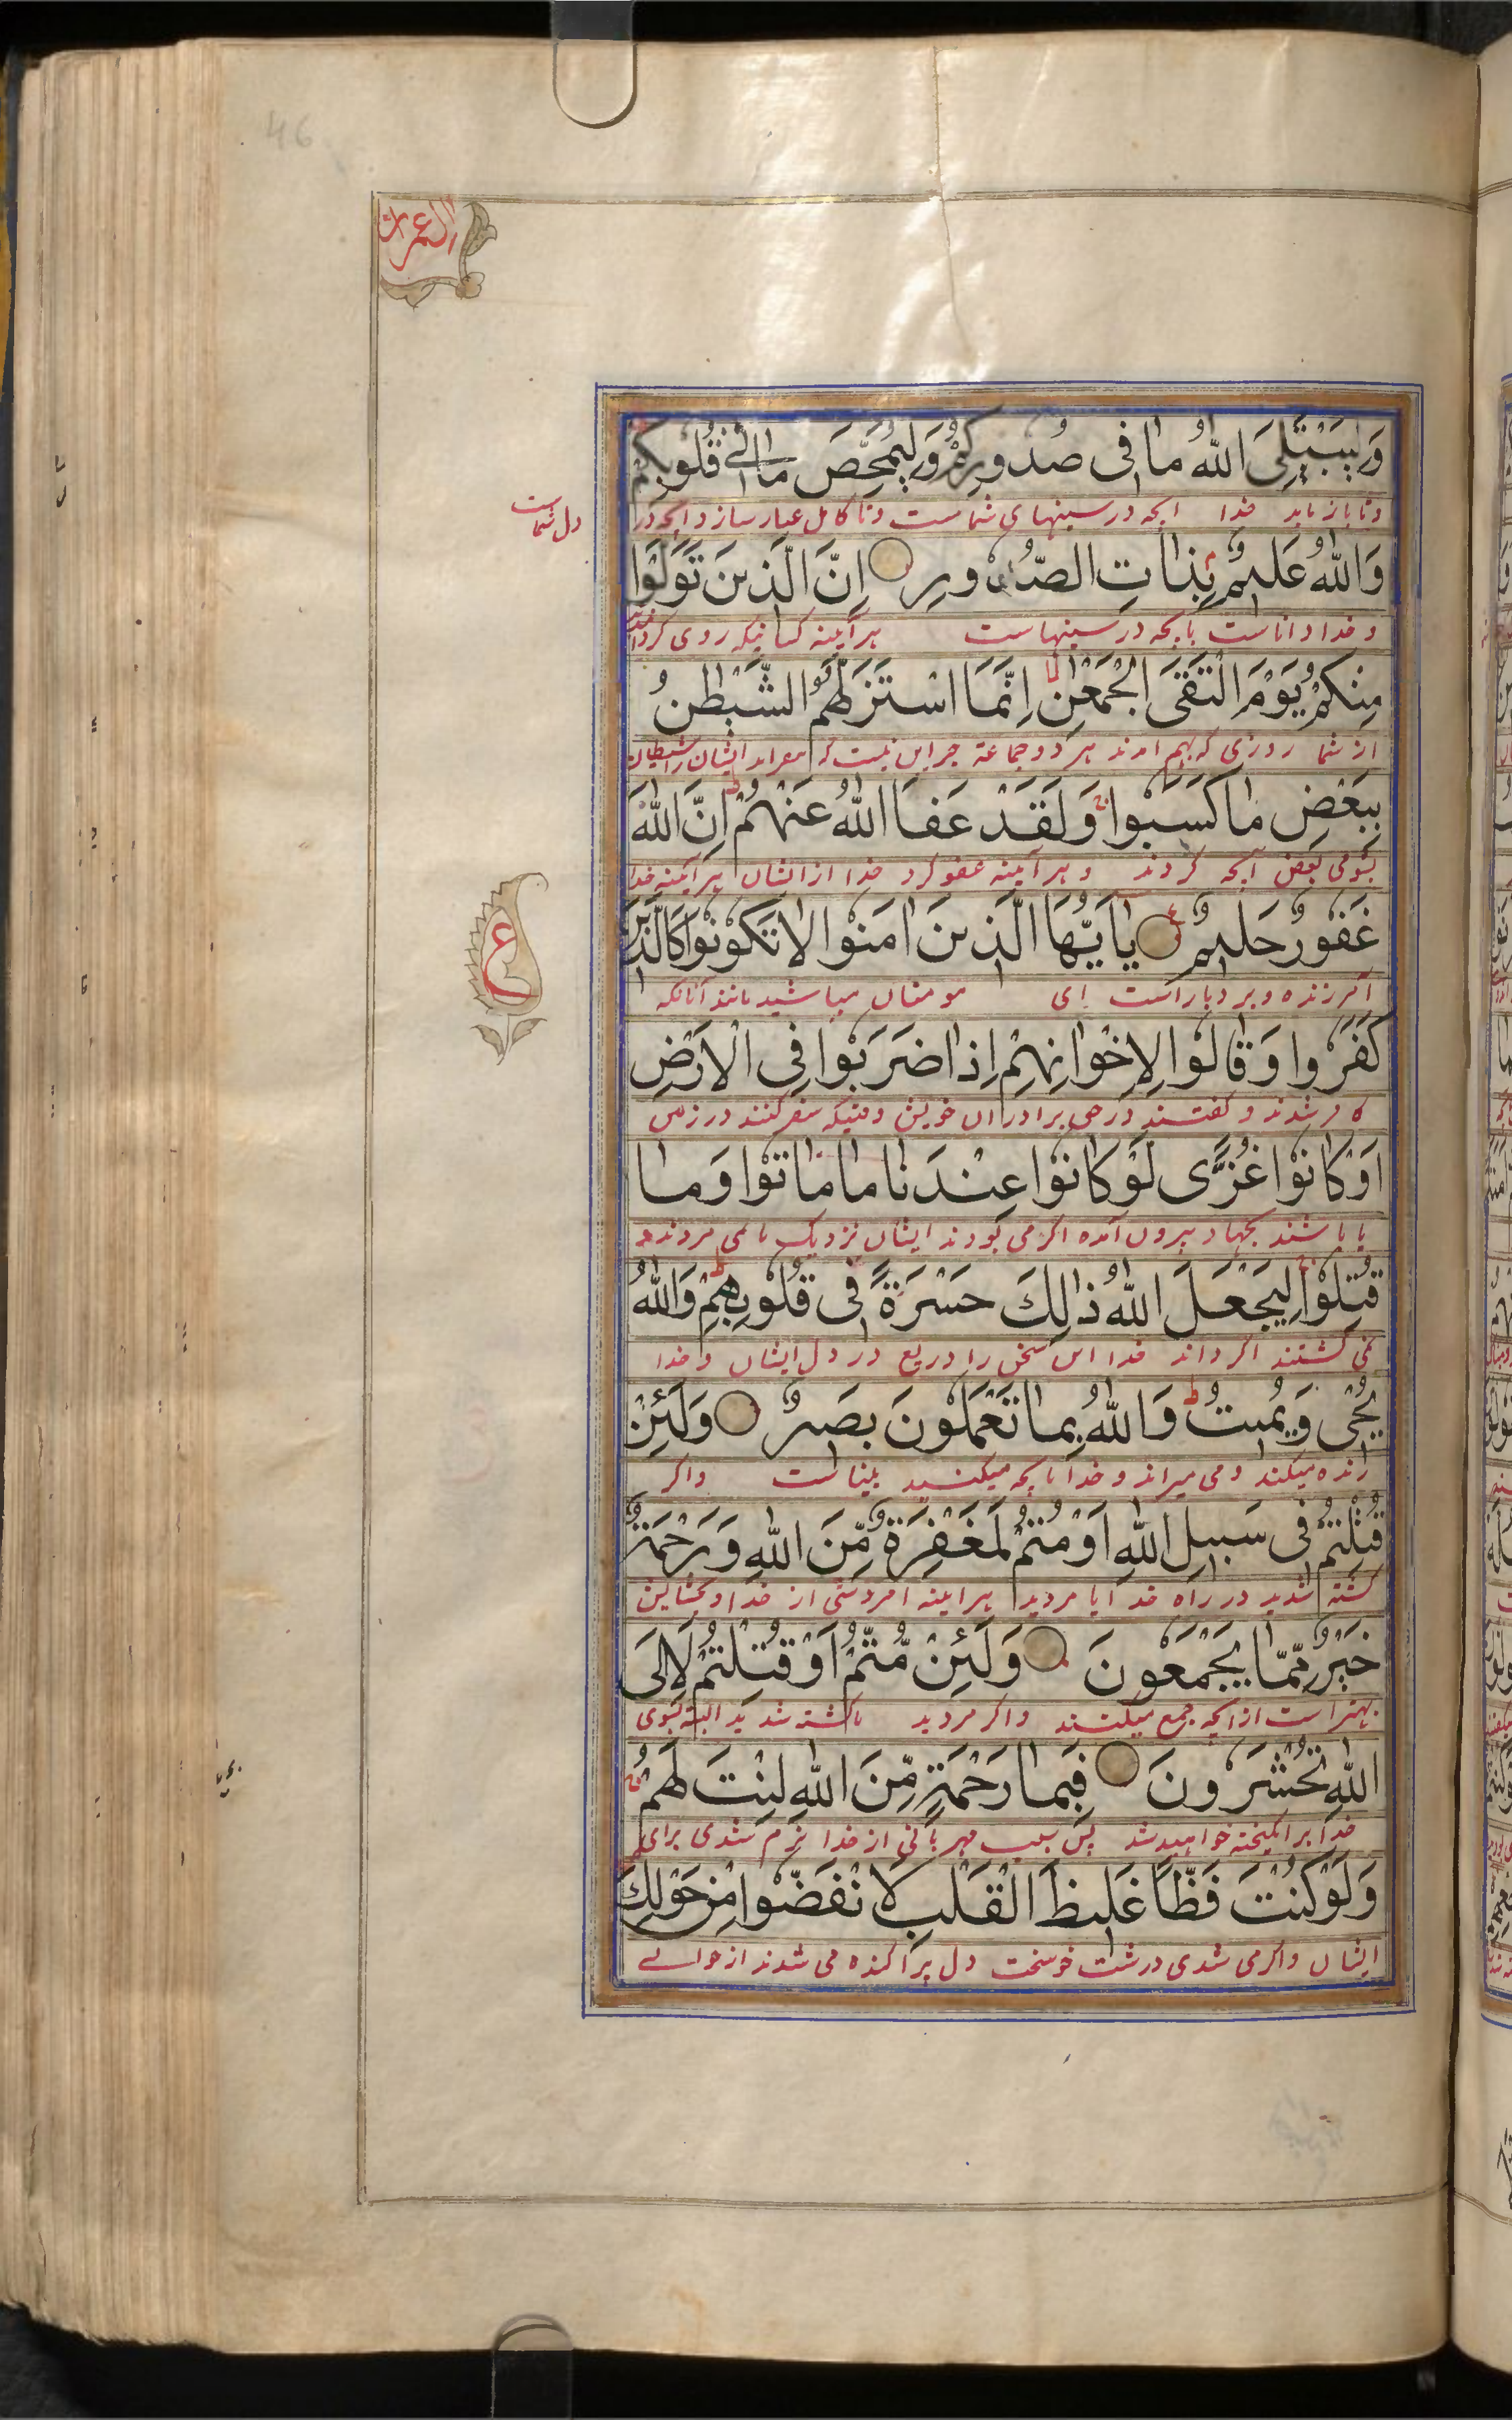 46
العمران
وَلِيَبْتَلِىَ اللّٰهُ مَا فِى صُدُورِكُمْ وَلِيُمَحِّصَ مَا فِي قُلُوبِكُمْ
وتا بازماید خدا انچه در سینهای شماست وتا کامل عیار سازد انچه در
دل شماست
وَاللّٰهُ عَلِيمٌ بِذَاتِ الصُّدُورِ اِنَّ الَّذِينَ تَوَلَّوْا
وخدا داناست بانچه در سینهاست هر آینه کسانیکه روی کردانیدند
مِنْكُمْ يَوْمَ الْتَقَى الْجَمْعٰنِ اِنَّمَا اسْتَزَلَّهُمُ الشَّيْطٰنُ
از شما روزی که بهم امدند هر دو جماعة جز این نیست که ایشان را شیطان
بِبَعْضِ مَا كَسَبُوا وَلَقَدْ عَفَا اللّٰهُ عَنْهُمْ اِنَّ اللّٰهَ
بشومی بعض آنچه کردند و هر آینه عفو کرد خدا از ایشان هر آینه خدا
غَفُورٌ حَلِيمٌ يٰاَيُّهَا الَّذِينَ اٰمَنُوا لَا تَكُونُوا كَالَّذِينَ
آمرزنده و بردبار است ای مومنان مباشید مانند آنانکه
ع
كَفَرُوا وَقَالُوا لِاِخْوَانِهِمْ اِذَا ضَرَبُوا فِى الْاَرْضِ
کافر شدند و کفتند در حق برادران خویش وقتیکه سفر کنند در زمین
اَوْ كَانُوا غُزًّى لَوْ كَانُوا عِنْدَنَا مَا مَاتُوا وَمَا
یا باشند بجهاد بیرون آمده اکر می بودند ایشان نزدیک ما نمی مردند و
قُتِلُوا لِيَجْعَلَ اللّٰهُ ذٰلِكَ حَسْرَةً فِى قُلُوبِهِمْ وَاللّٰهُ
نمی کشتند خدا این سخن را دریغ در دل ایشان و خدا
يُحْىِ وَيُمِيتُ وَاللّٰهُ بِمَا تَعْمَلُونَ بَصِيرٌ وَلَئِنْ
زنده میکند و می میراند و خدا بانچه میکنید بیناست واکر
قُتِلْتُمْ فِى سَبِيلِ اللّٰهِ اَوْ مُتُّمْ لَمَغْفِرَةٌ مِّنَ اللّٰهِ وَرَحْمَةٌ
کشته شدید در راه خدا یا مردید هر اینه امرزشی از خدا و بخشایش
خَيْرٌ مِّمَّا يَجْمَعُونَ وَلَئِنْ مُّتُّمْ اَوْ قُتِلْتُمْ لَاِلَى
بهتر است از انچه جمع میکنند واکر مردید یا کشته شدید البته بسوی
اللّٰهِ تُحْشَرُونَ فَبِمَا رَحْمَةٍ مِّنَ اللّٰهِ لِنْتَ لَهُمْ
خدا برانکیخته خواهید شد پس بسبب مهربانی از خدا نرم شدی برای
وَلَوْ كُنْتَ فَظًّا غَلِيظَ الْقَلْبِ لَانْفَضُّوا مِنْ حَوْلِكَ
ایشان واکر می شدی درشت خو سخت دل پراکنده می شدند از حوالے